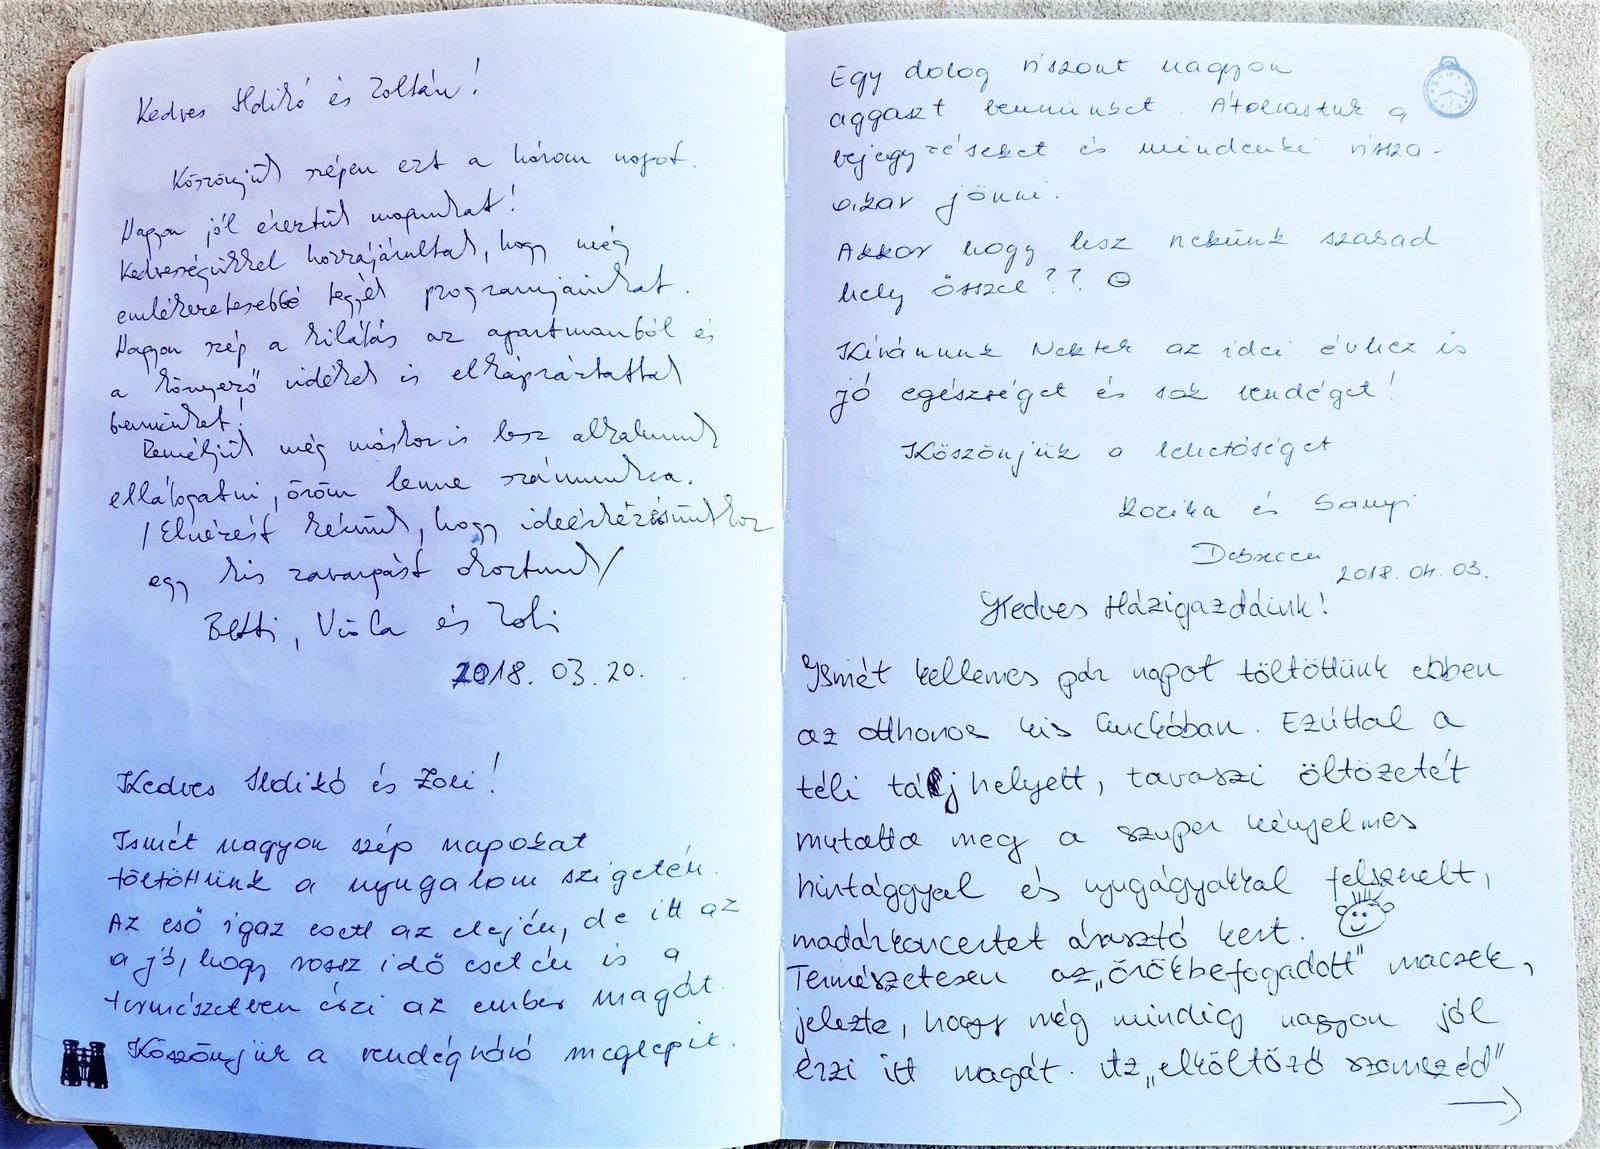 Kedves Ildikó és Zoltán!
Köszönjük szépen ezt a három napot.
Nagyon jól éreztük magunkat!
Kedvességükkel hozzájárultak, hogy még
emlékezetesebbé tegyék programjainkat.
Nagyon szép a kilátás az apartmanból és
a környező vidékek is elkápráztattak
bennünket!
Reméljük még máskor is lesz alkalmunk
ellátogatni, öröm lenne számunkra.
/Elnézést kérünk, hogy ideérkezésünkkor
egy kis zavargást okoztunk/
Betti, Viola és Zoli
2018. 03. 20.
Kedves Ildikó és Zoli!
Ismét nagyon szép napokat
töltöttünk a nyugalom szigetén.
Az eső igaz esett az elején, de itt az
a jó, hogy rossz idő esetén is a
természetben érzi az ember magát.
Köszönjük a vendégváró meglepit.
Egy dolog viszont nagyon
aggaszt bennünket. Átolvastuk a
bejegyzéseket és mindenki vissza-
akar jönni.
Akkor hogy lesz nekünk szabad
hely ősszel?? ☺
Kívánunk Nektek az idei évhez is
jó egészséget és sok vendéget!
Köszönjük a lehetőséget
Rozika és Sanyi
Debrecen
2018. 04. 03.
Kedves Házigazdáink!
Ismét kellemes pár napot töltöttünk ebben
az otthonos kis kuckóban. Ezúttal a
téli táj helyett, tavaszi öltözetét
mutatta meg a szuper kényelmes
hintággyal és nyugágyakkal felszerelt,
madárkoncertet árasztó kert.
Természetesen az „örökbefogadott" macsek,
jelezte, hogy még mindig nagyon jól
érzi itt magát. Az „elköltöző szomszéd"